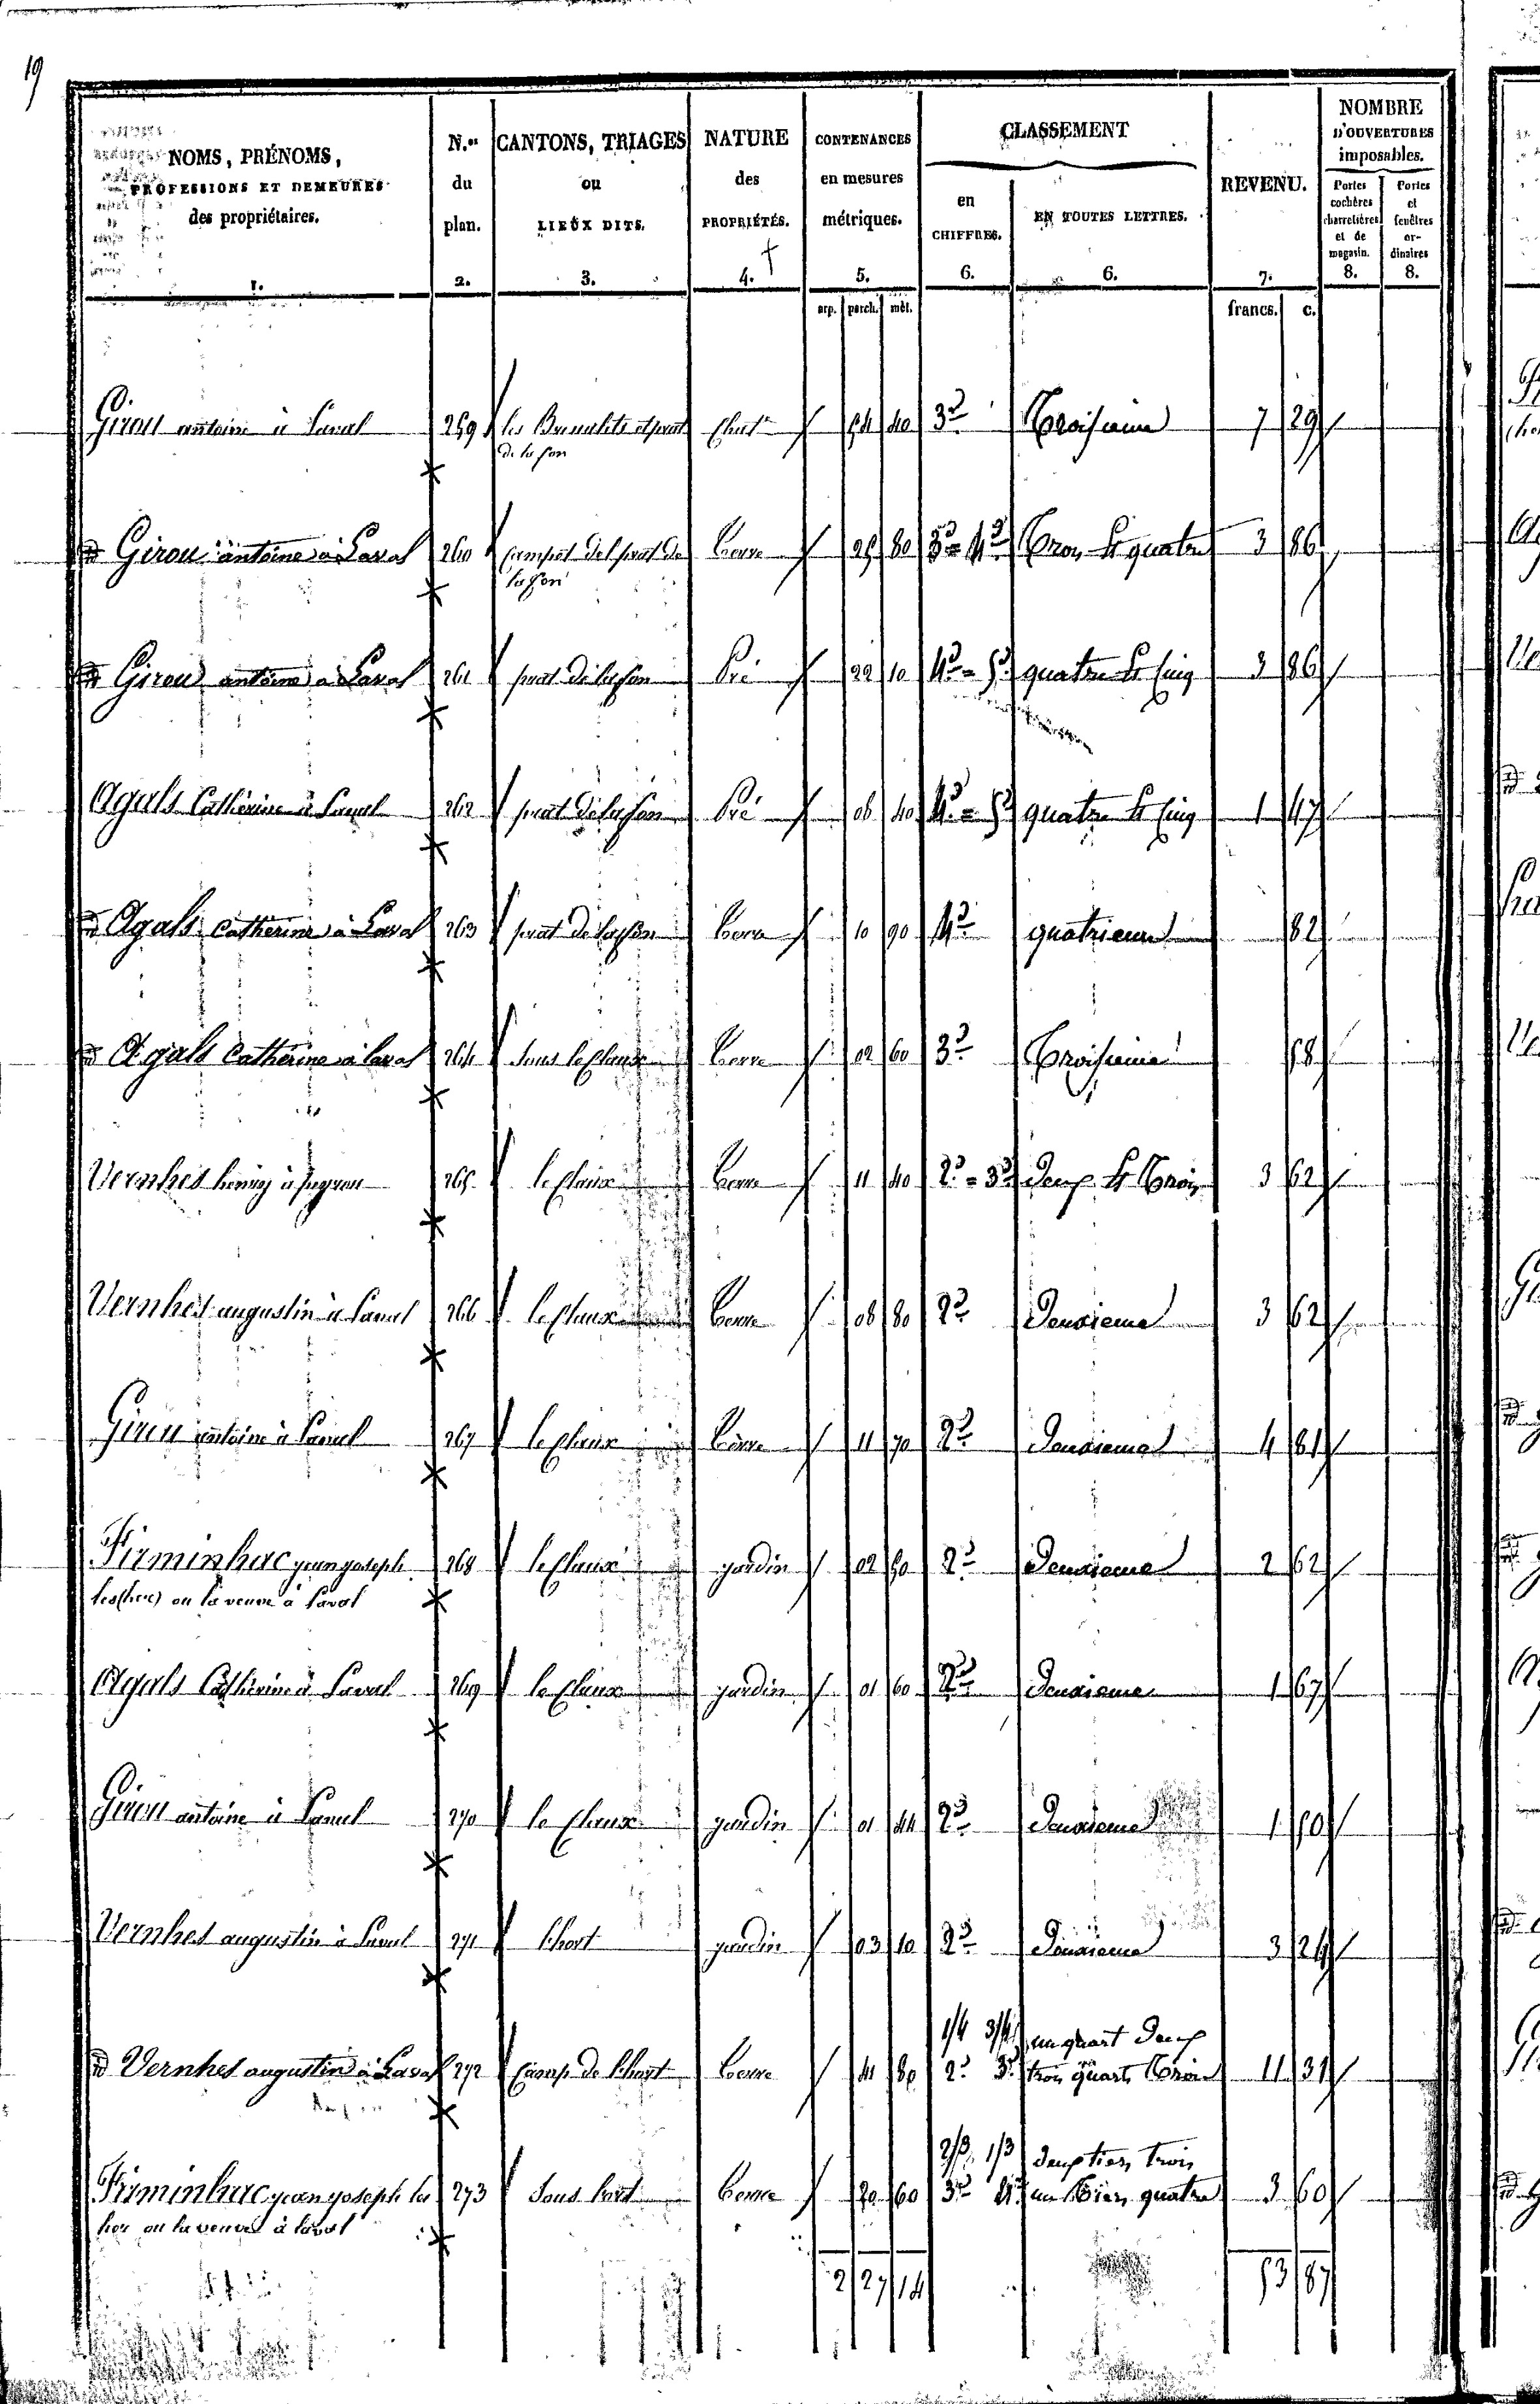 19
NOMS, PRÉNOMS,
PROFESSIONS ET DEMEURES
des propriétaires.
1.
N.os
du
plan.
2.
CANTONS, TRIAGES
ou
LIEUX DITS.
3.
NATURE
des
PROPRIÉTÉS.
4.
CONTENANCES
en mesures
métriques.
5.
arp. perch. mèt.
CLASSEMENT
en
CHIFFRES.
6.
EN TOUTES LETTRES.
6.
REVENU.
7.
francs. c.
NOMBRE
D'OUVERTURES
imposables.
Portes
cochères
charretières
et de
magasin.
8.
Portes
et
fenêtres
or-
dinaires
8.
Girou antoine à Laval 259 les et prat 54 40 3e Troisieme 7 29
de la fon
Girou antoine à Laval 260 campet del prat de terre 25 80 3e = 4e Trois et quatre 3 86
la fon
Girou antoine à Laval 261 prat de la fon Pré 22 10 4e = 5e quatre et cinq 3 86
Agals Catherine à Laval 262 prat de la fon Pré 08 40 4e = 5e quatre et cinq 1 47
Agals Catherine à Laval 263 prat de la fon terre 10 90 4e quatrieme 82
Agals Catherine à laval 264 Sous le Claux terre 02 60 3e Troisieme 58
Vernhes à 265 le Claux terre 11 40 2e = 3e Deux et Trois 3 62
Vernhes augustin à Laval 266 le Claux terre 08 80 2e Deuxieme 3 62
Girou antoine à Laval 267 le Claux terre 11 70 2e Deuxieme 4 81
Firminhac jean joseph 268 le Claux jardin 02 50 2e Deuxieme 2 62
les (her) ou la veuve à Laval
Agals Catherine à Laval 269 le Claux jardin 01 60 2e Deuxieme 1 67
Girou antoine à Laval 270 le Claux jardin 01 44 2e Deuxieme 1 50
Vernhes augustin à Laval 271 l'hort jardin 03 10 2e Deuxieme 3 24
1/4 3/4 un quart Deux
Vernhes augustin à Laval 272 Camp de l'hort terre 41 80 2e 3e trois quarts Trois 11 31
2/3 1/3 deux tiers trois
Firminhac jean joseph les 273 Sous l'ort terre 20 60 3e 4e un tiers quatre 3 60
her ou la veuve à laval
2 27 14 53 87